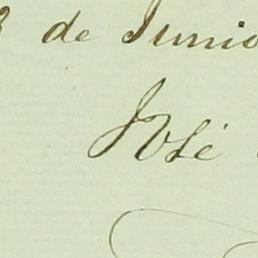 de Junio
José